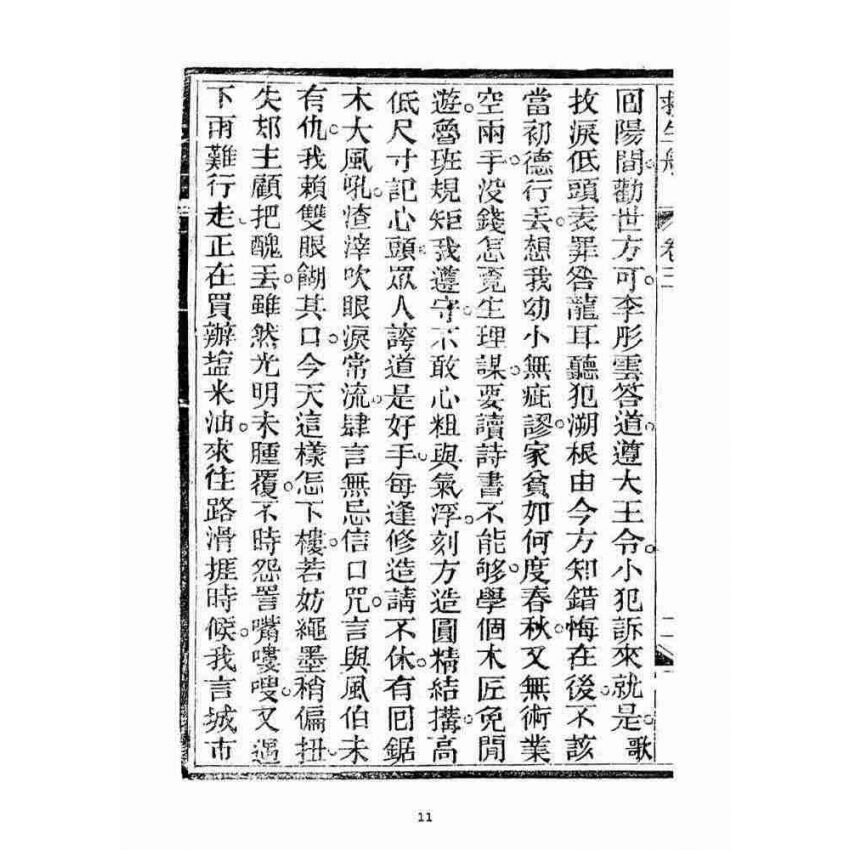 救生船 卷三 二一
囘陽間勸世方可。李彤雲答道。遵大王令。小犯訴來就是。歌
抆淚低頭表罪咎。龍耳聽犯溯根由。今方知錯悔在後。不該
當初德行丟。想我幼小無疵謬。家貧如何度春秋。又無術業
空兩手。没錢怎覔生理謀。要讀詩書不能够。學個木匠免閒
遊。魯班規矩我遵守。不敢心粗與氣浮。刻方造圓精結搆。高
低尺寸記心頭。眾人誇道是好手。每逢修造請不休。有囘鋸
木大風吼。渣滓吹眼淚常流。肆言無忌信口咒。言與風伯未
有仇。我賴雙眼餬其口。今天這樣怎下樓。若妨繩墨稍偏扭。
失却主顧把醜丟。雖然光明未腫覆。不時怨詈嘴嘍嗖。又遇
下雨難行走。正在買辦塩米油。來往路滑捱時候。我言城市
11